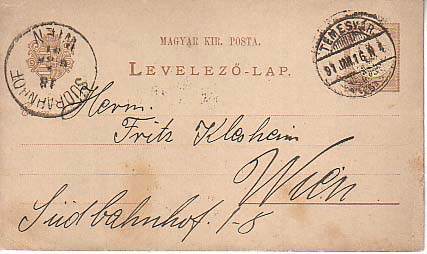 MAGYAR KIR. POSTA.
LEVELEZŐ-LAP.
WIEN
SÜDBAHNHOF
TEMESVÁR
91 JUN 16
Herrn
Fritz Klesheim
Wien
Südbahnhof. 1-8